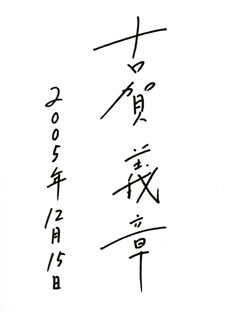 古賀義章
2005年12月15日